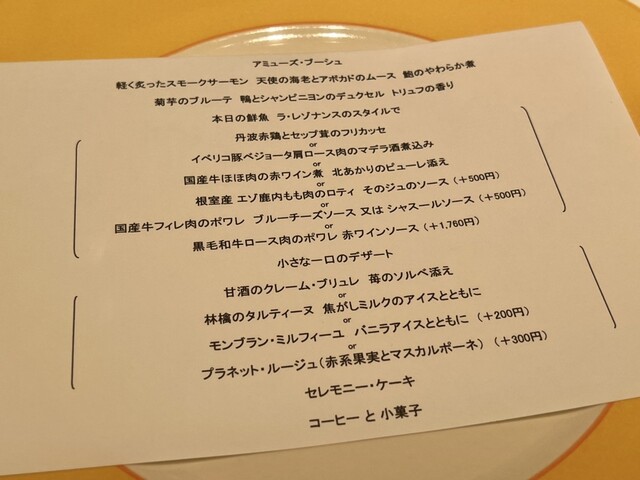 アミューズ・ブーシュ
軽く炙ったスモークサーモン 天使の海老とアボカドのムース 鮑のやわらか煮
菊芋のブルーテ 鴨とシャンピニヨンのデュクセル トリュフの香り
本日の鮮魚 ラ・レゾナンスのスタイルで
丹波赤鶏とセップ茸のフリカッセ
or
イベリコ豚ベジョータ肩ロース肉のマデラ酒煮込み
or
国産牛ほほ肉の赤ワイン煮 北あかりのピューレ添え
or
根室産 エゾ鹿内もも肉のロティ そのジュのソース (+500円)
or
国産牛フィレ肉のポワレ ブルーチーズソース 又は シャスールソース (+500円)
or
黒毛和牛ロース肉のポワレ 赤ワインソース (+1,760円)
小さな一口のデザート
甘酒のクレーム・ブリュレ 苺のソルベ添え
or
林檎のタルティーヌ 焦がしミルクのアイスとともに
or
モンブラン・ミルフィーユ バニラアイスとともに (+200円)
or
プラネット・ルージュ(赤系果実とマスカルポーネ) (+300円)
セレモニー・ケーキ
コーヒー と 小菓子